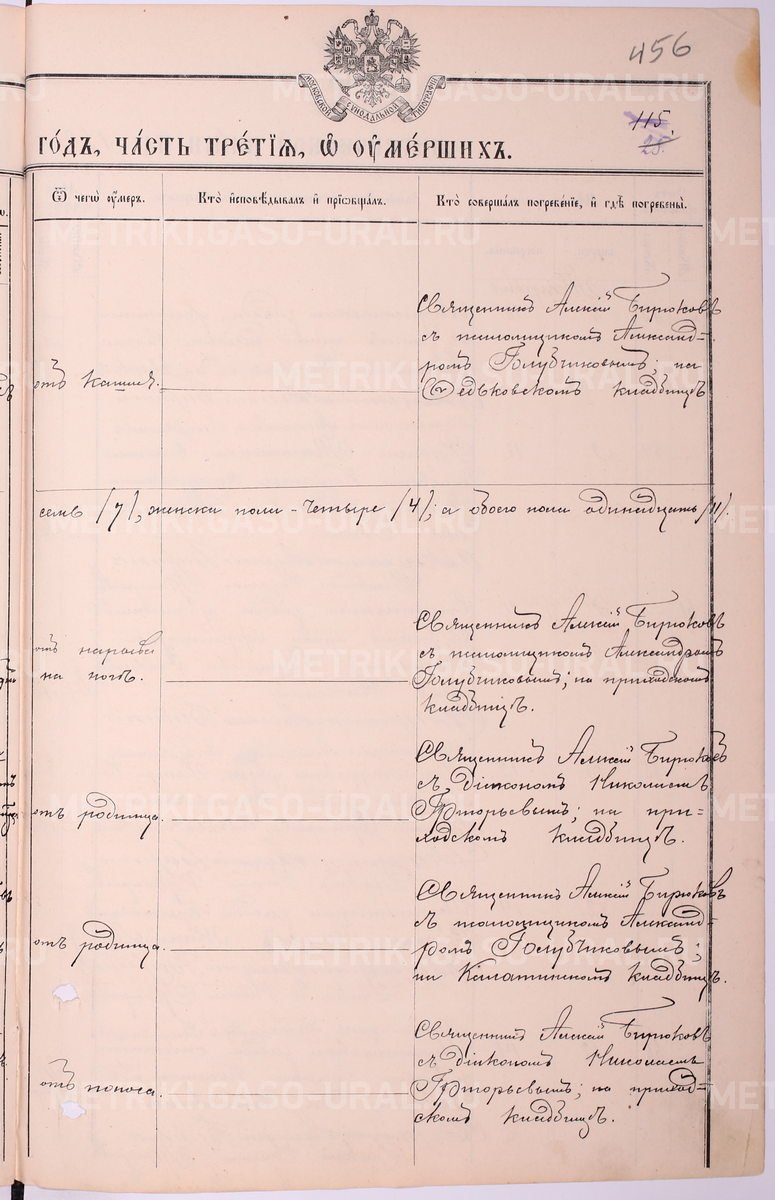 456
МОСКОВСКОЙ СѴНОДАЛЬНОЙ ТИПОГРАФІИ
115.
25.
го́дъ, ча́сть тре́тїѧ, ѡ҆ оу҆ме́ршихъ.
Ѿ чегѡ̀ оу҆́меръ.
Кто̀ и҆сповѣ́дывалъ и҆ прїѡбща́лъ.
Кто̀ соверша́лъ погребе́нїе, и҆ гдѣ̀ погребены̀.
отъ кашля.
Священникъ Алексій Бирюковъ
съ псаломщикомъ Александ=
ромъ Голубчиковымъ; на
кладбищѣ
семь /7/, женска пола - четыре /4/; а обоего пола одинадцать /11/.
отъ нарыва
на ногѣ.
Священникъ Алексій Бирюковъ
съ псаломщикомъ Александромъ
Голубчиковымъ; на приходскомъ
кладбищѣ.
отъ родимца.
Священникъ Алексій Бирюковъ
съ діакономъ Николаемъ
Григорьевымъ; на при=
ходскомъ кладбищѣ.
отъ родимца.
Священникъ Алексій Бирюковъ
съ псаломщикомъ Александ=
ромъ Голубчиковымъ;
на Калатинскомъ кладбищѣ.
отъ поноса.
Священникъ Алексій Бирюковъ
съ діакономъ Николаемъ
Григорьевымъ; на приход=
скомъ кладбищѣ.
METRIKI.GASO-URAL.RU